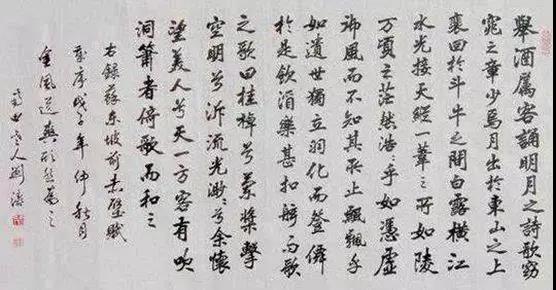 舉酒屬客誦明月之詩歌窈
窕之章少焉月出於東山之上
裵回於斗牛之間白露橫江
水光接天縱一葦之所如陵
万頃之茫然浩々乎如憑虛
御風而不知其所止飄飄乎
如遺世獨立羽化而登僊
於是飲酒樂甚扣舷而歌
之歌曰桂棹兮蘭槳擊
空明兮泝流光渺々兮余懷
望美人兮天一方客有吹
洞簫者倚歌而和之
右録蘇东坡前赤壁賦
歲序戊子年仲秋月
金風送爽欣然為之
老人